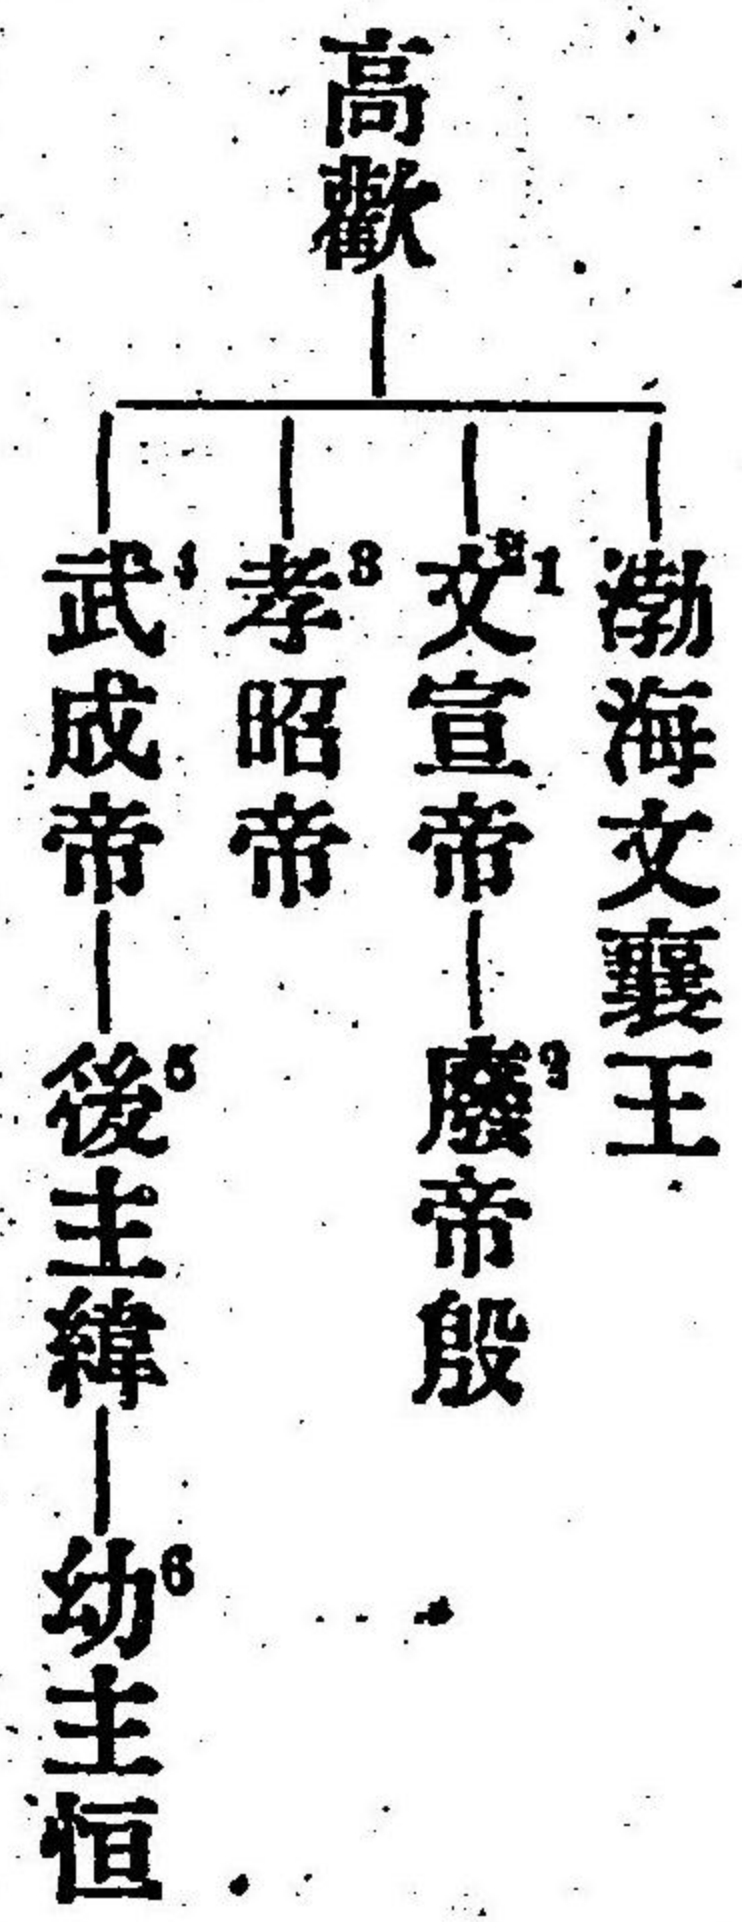 高歡
渤海文襄王
文宣帝1
廢帝殷2
孝昭帝3
武成帝4
後主緯5
幼主恒6